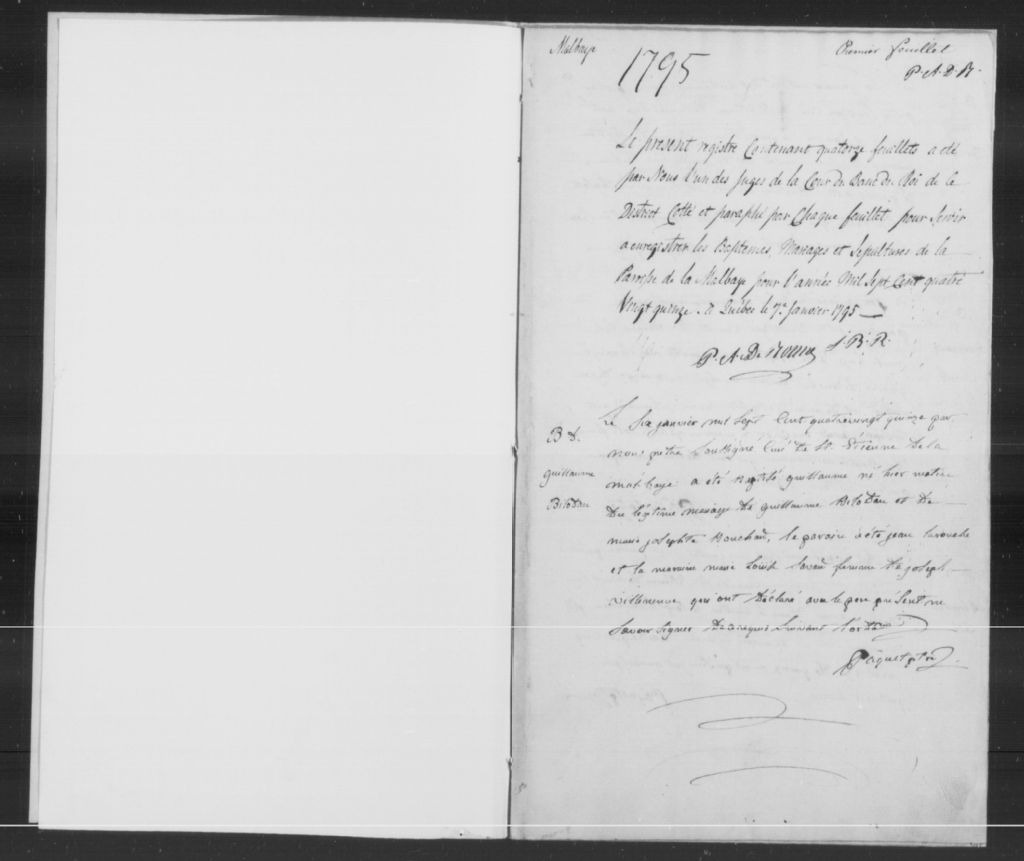 Malbaye
1795
Premier feuillet
P. A. D. B.
Le present registre Contenant quatorze feuillets a eté
par Nous l'un des Juges de la Cour du Banc du Roi de ce
District Cotté et paraphé par Chaque feuillet pour Servir
a enregistrer les Baptemes, Mariages et Sepultures de la
Paroisse de la Malbaye pour l'année Mil Sept Cent quatre
Vingt quinze. à Québec le 7e. Janvier 1795
P. A. De Bonne J. B. R.
B d.
guillaume
Bilodau
Le six janvier mil sept Cent quatrevingt quinze par
nous prêtre soussigné Curé de St. Etienne de la
malbaye a été Baptisé guillaume né hier matin
Du légitime mariage de guillaume Bilodau et De
marie josephte Bouchard, le parain a été jean
et la maraine marie Louise Savard femme de joseph
villeneuve qui ont Déclaré avec le pere présent ne
savoir signer De ce requis suivant l'ord
Paquet ptre